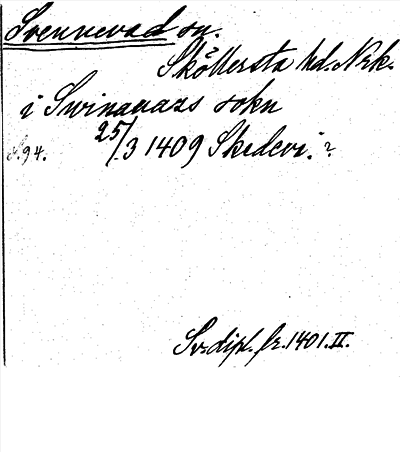 Svennevad sn.
Sköllersta hd. Nrk.
i Swinawazs sokn
s. 94. 25/3 1409 Skedevi. ?
Sv. dipl. fr. 1401. II.